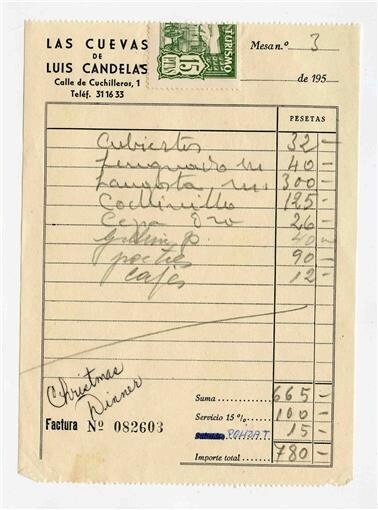 LAS CUEVAS
DE
LUIS CANDELAS
Calle de Cuchilleros, 1
Teléf. 31 16 33
TURISMO
15
PTAS
Mesa n.º 3
de 195
PESETAS
Cubiertos 32 -
Lenguado m 40 -
Langosta, m. 300 -
Cochinillo 125 -
Cepa Oro 26 -
p. 40
postres 90 -
cafés 12 -
Christmas
Dinner
Suma 665 -
Servicio 15 % 100 -
POLIZA T. 15 -
Importe total 780 -
Factura Nº 082603